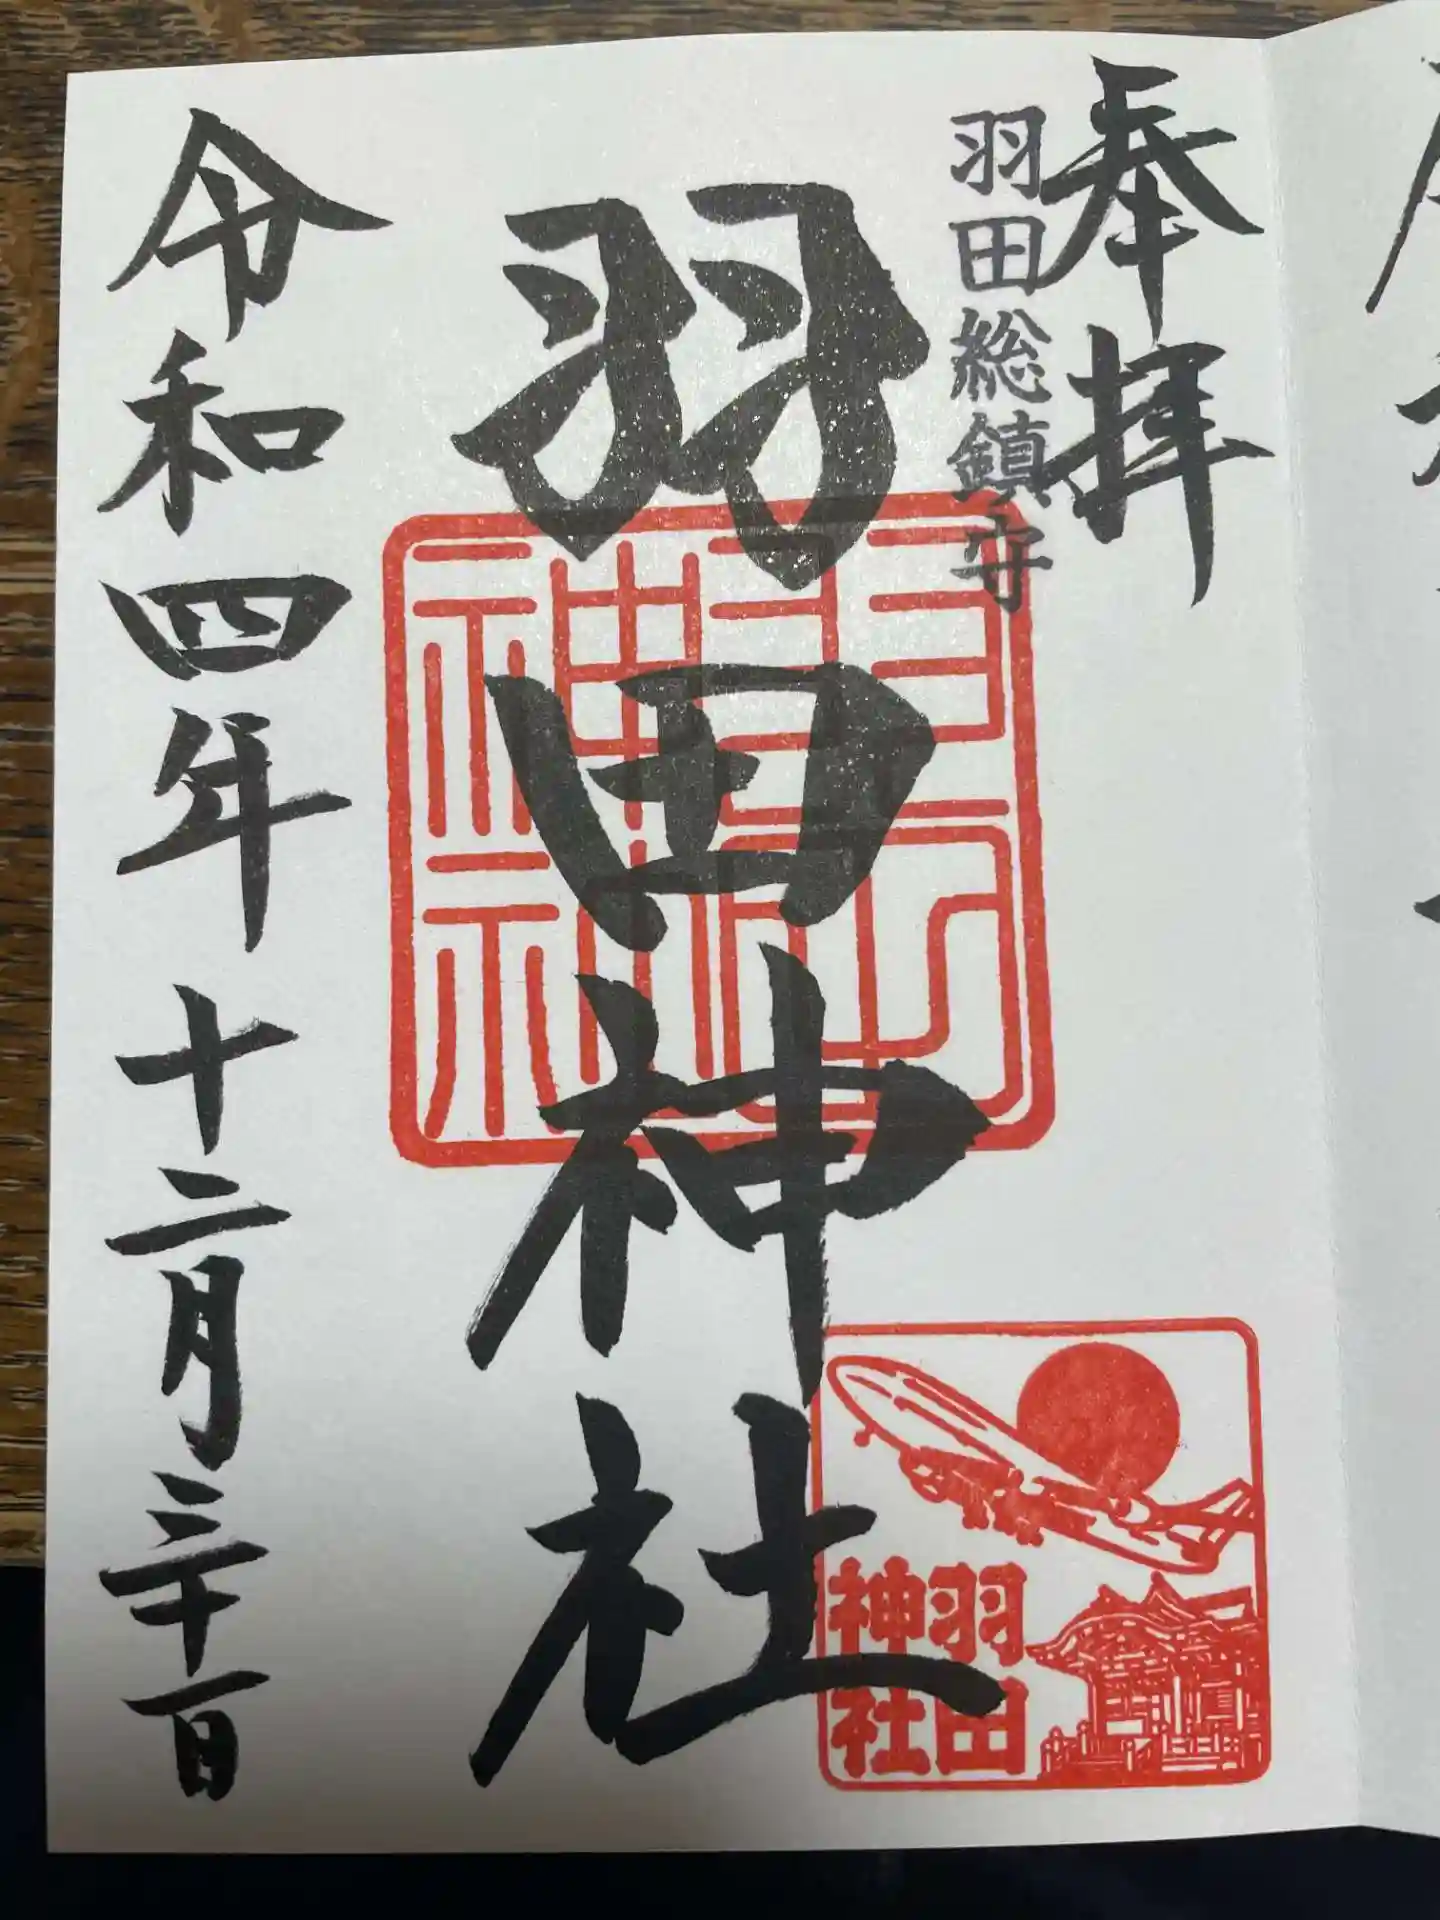 奉拝
羽田総鎮守
羽田神社
令和四年十二月三十一日
羽田
神社